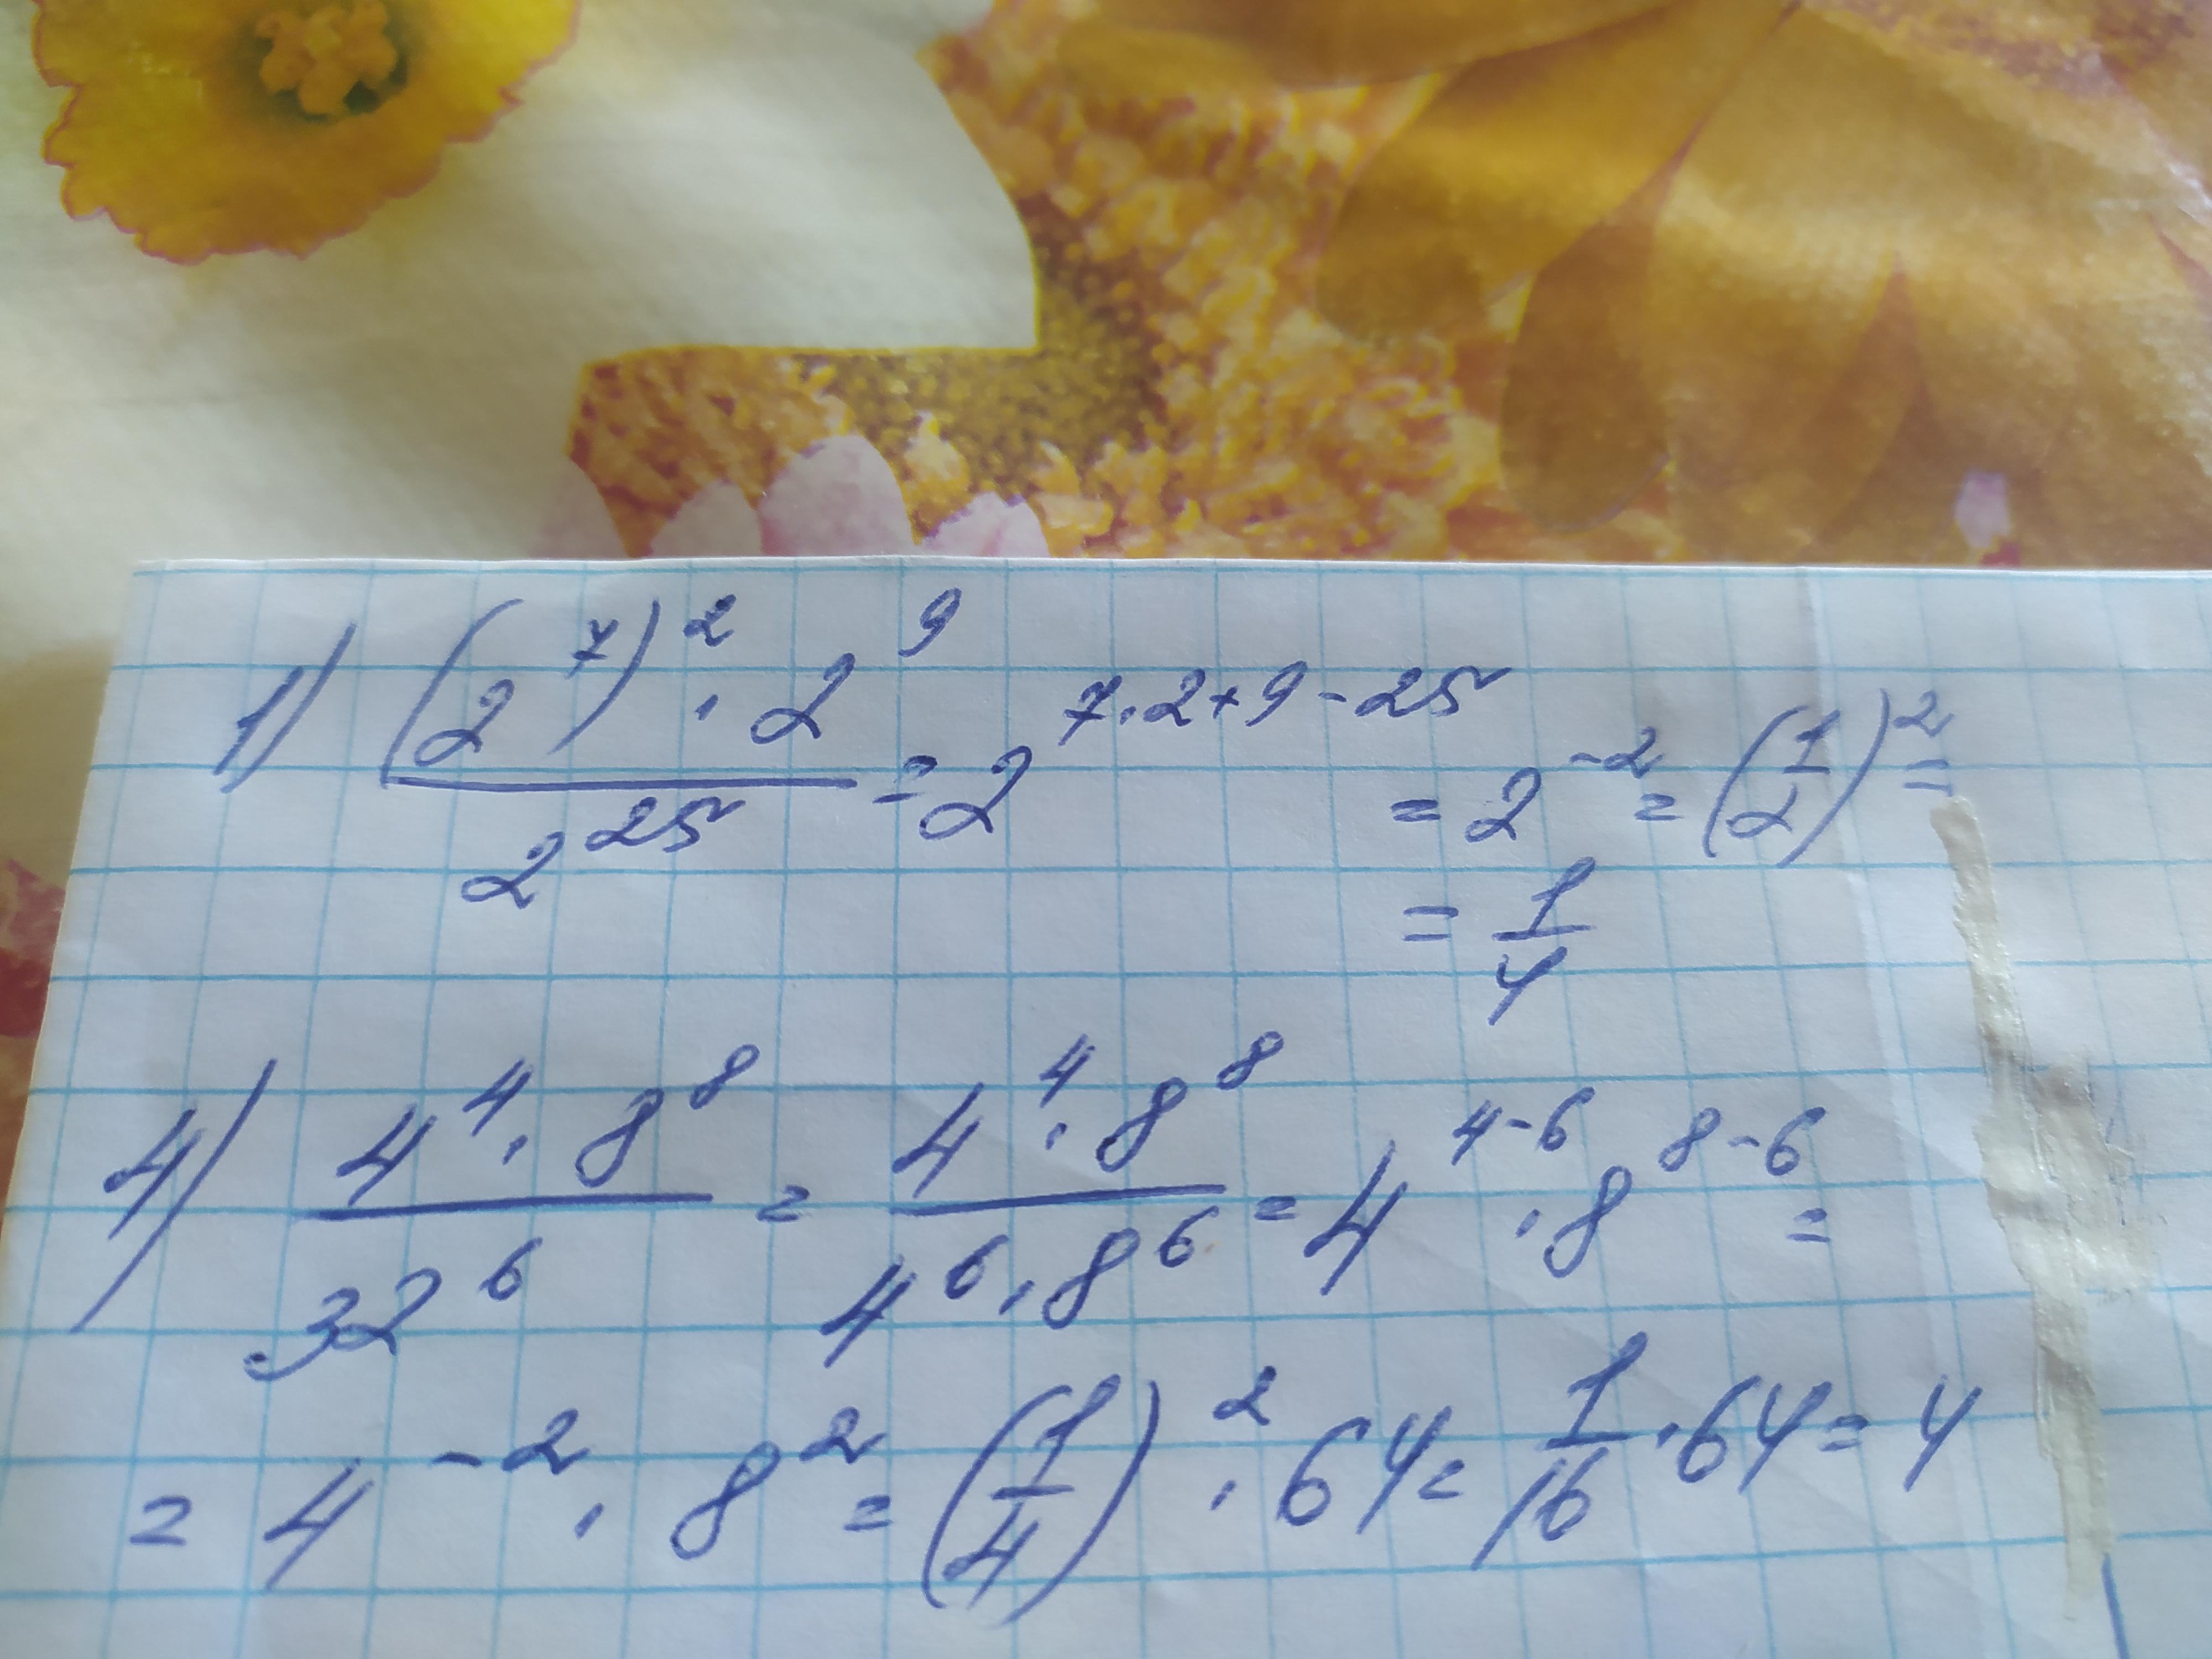 1) (2^7)^2 · 2^9 / 2^25 = 2^(7·2+9-25) = 2^-2 = (1/2)^2 =
= 1/4
4) 4^4 · 8^8 / 32^6 = 4^4 · 8^8 / 4^6 · 8^6 = 4^(4-6) · 8^(8-6) =
= 4^-2 · 8^2 = (1/4)^2 · 64 = 1/16 · 64 = 4